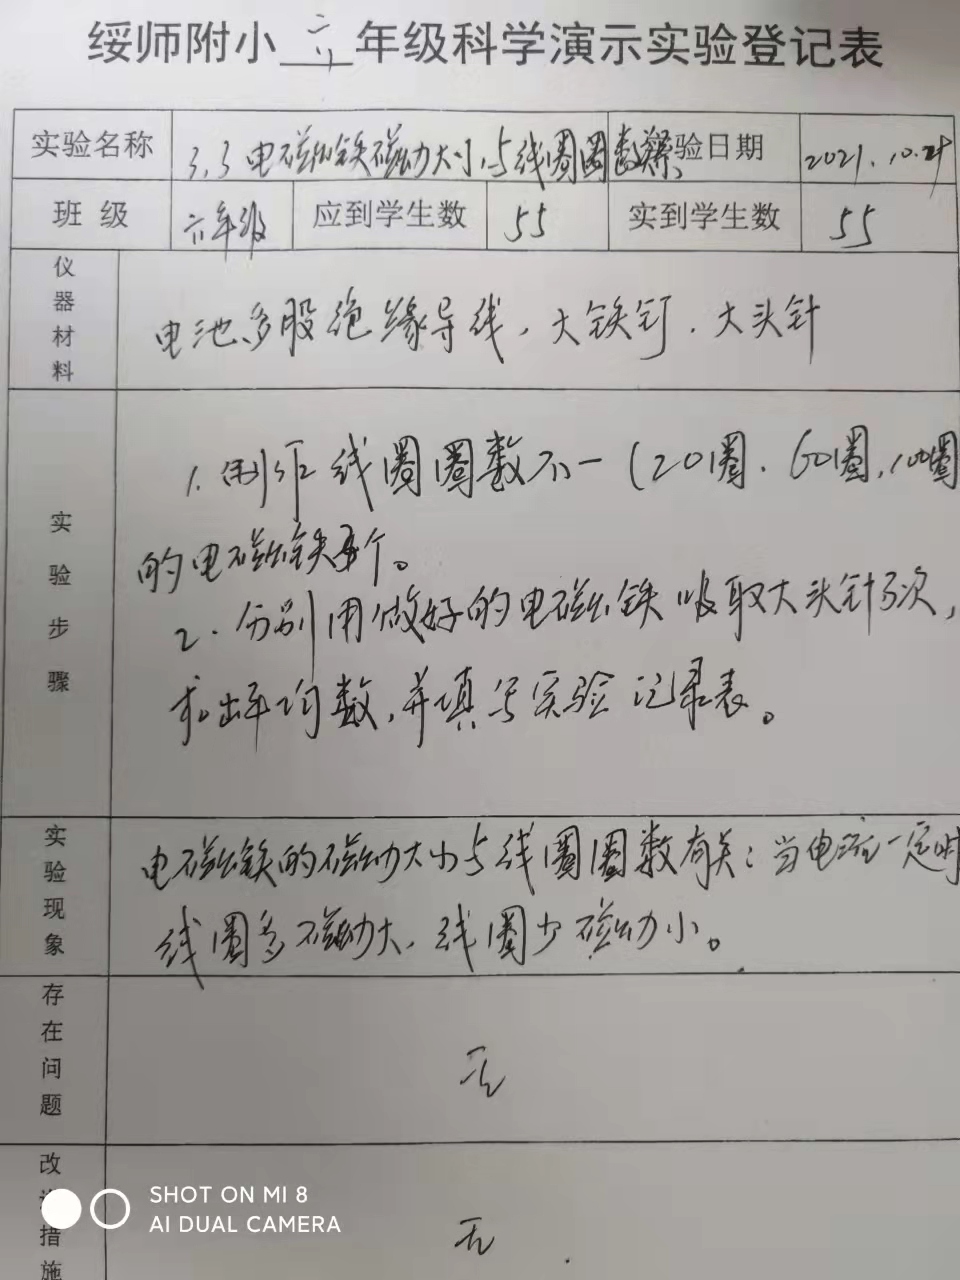 绥师附小六年级科学演示实验登记表
实验名称 3.3电磁铁磁力大小与线圈圈数 验日期 2021.10.29
班 级 六年级 应到学生数 55 实到学生数 55
仪器材料 电池、多股绝缘导线、大铁钉、大头针
实验步骤
1.制作线圈圈数不一(20圈、60圈、100圈
的电磁铁 个。
2.分别用做好的电磁铁吸取大头针3次,
求出平均数,并填写实验记录表。
实验现象
电磁铁的磁力大小与线圈圈数有关:当电流一定时
线圈多磁力大,线圈少磁力小。
存在问题 无
改 措施 无
SHOT ON MI 8
AI DUAL CAMERA